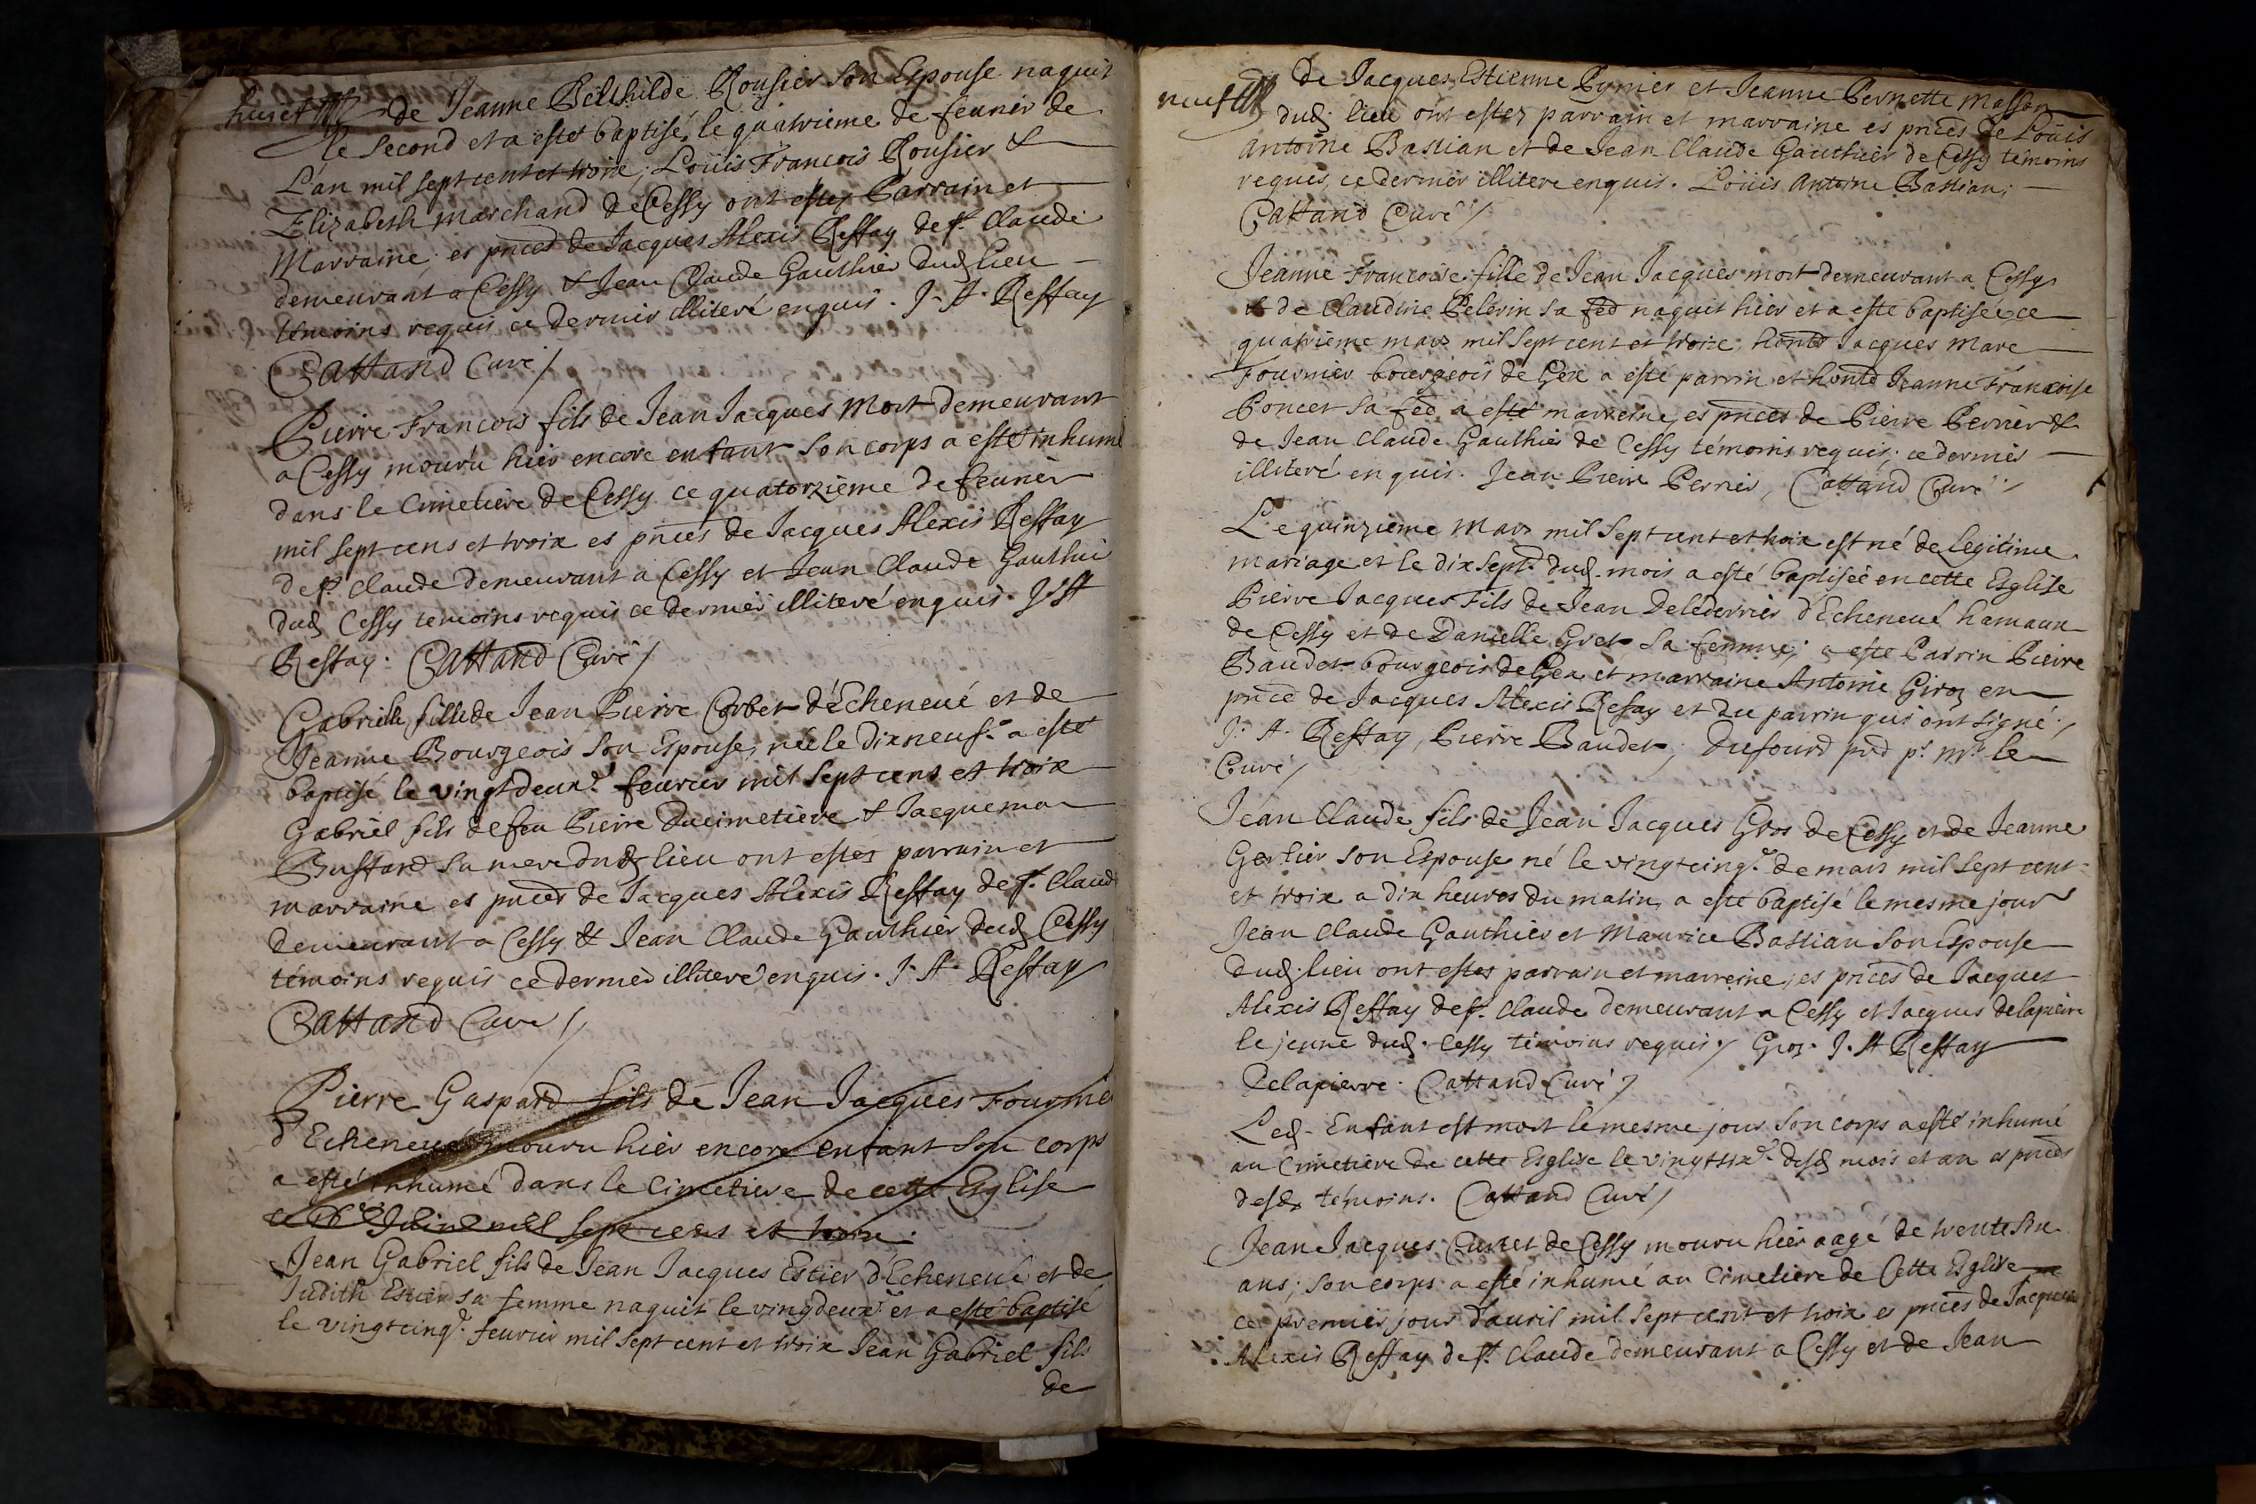 huict
de Jeanne Bathilde Rousier son Espouse naquit
le second et a esté baptisé le quatrieme de feurier de
L'an mil sept cent et troix, Loüis Francois Rousier &
Elizabeth marchand de Cessy ont estez Parrain et
Marraine, es pnces de Jacques Alexis Reffay de st. Claude
demeurant a Cessy & Jean Claude Gauthier dud lieu
témoins requis ce dernier illiteré enquis. J. A. Reffay
Cattand Curé /
Pierre Francois fils de Jean Jacques Mort demeurant
a Cessy mouru hier encore enfant son corps a esté inhumé
dans le Cimetiere de Cessy ce quatorzieme de feurier
mil sept cens et troix es pnces de Jacques Alexis Reffay
de st. Claude demeurant a Cessy et Jean Claude Gauthier
dud Cessy temoins requis ce dernier illiteré enquis. J. A
Reffay. Cattand Curé /
Gabrielle fille de Jean Pierre Corbet d'Echeneué et de
Jeanne Bourgeois son Espouse, née le dixneufe. a esté
baptisé le vingtdeuxe. feurier mil sept cens et troix
Gabriel fils de feu Pierre Ducimetiere & Jacquema
Bussard sa mere dud lieu ont estez parrain et
marraine es pnces de Jacques Alexis Reffay de st. Claude
demeurant a Cessy & Jean Claude Gauthier dud Cessy
témoins requis ce dernier illiteré enquis. J. A. Reffay
Cattand Curé /
Pierre Gaspard fils de Jean Jacques Fournier
d'Echeneué mouru hier encore enfant son corps
a esté inhumé dans le Cimetiere de cette Esglise
mil sept cens et troix.
Jean Gabriel fils de Jean Jacques Estier d'Echeneué et de
Judith Estier sa femme naquit le vingdeuxe et a esté baptisé
le vingtcinqe. feurier mil sept cent et troix Jean Gabriel fils
de
neuf
de Jacques Estienne Pynier et Jeanne Pernette Masson
dud. lieu ont estez parrain et marraine es pnces de Loüis
antoine Bastian et de Jean Claude Gauthier de Cessy témoins
requis, ce dernier illiteré enquis. Loüis Antoine Bastian;
Cattand Curé /
Jeanne Francoise fille de Jean Jacques mort demeurant a Cessy
& de Claudine Pelerin sa fed naquit hier et a esté baptisée ce
quatrieme mars mil sept cent et troix, honte Jacques Marc
Fournier bourgeois de Gex a esté parrin et honte Jeanne Francoise
Poncet sa fed a esté marreine, es pnces de Pierre Perrier &
de Jean Claude Gauthier de Cessy témoins requis, ce dernier
illiteré enquis. Jean Pierre Perrier, Cattand Curé /
Le quinzieme Mars mil sept cent et troix est né de Legitime
mariage et le dix septe dud. mois a esté baptiseé en cette Esglise
Pierre Jacques Fils de Jean Delederrier d'Echeneué hamaux
de Cessy et de Danielle Gret sa femme; a esté Parrin Pierre
Baudet bourgeois de Gex et marraine Antoine Giroz en
pnce de Jacques Alexis Refay et du parrin qui ont signé /
J. A. Reffay, Pierre Baudet, Dufourd pnd pr. mr. le
Curé /
Jean Claude fils de Jean Jacques Gros de Cessy et de Jeanne
Gerlier son Espouse né le vingtcinqe. de mars mil sept cent
et troix a dix heures du matin, a esté baptisé le mesme jour
Jean Claude Gauthier et Maurice Bastian son Espouse
dud. lieu ont estez parrain et marreine, es pnces de Jacques
Alexis Reffay de st. Claude demeurant a Cessy et Jacques delapierre
le jeune dud. Cessy témoins requis / Groz. J. A Reffay
Delapierre. Cattand Curé /
Led. Enfant est mort le mesme jour son corps a esté inhumé
au Cimetiere de cette Esglise le vingtsixe. desd mois et an es pnces
desd temoins. Cattand Curé /
Jean Jacques Curtet de Cessy mouru hier aagé de trente six
ans; son corps a esté inhumé au Cimetiere de Cette Esglise
ce premier jour d'auril mil sept cent et troix es pnces de Jacques
Alexis Reffay de st. Claude demeurant a Cessy et de Jean